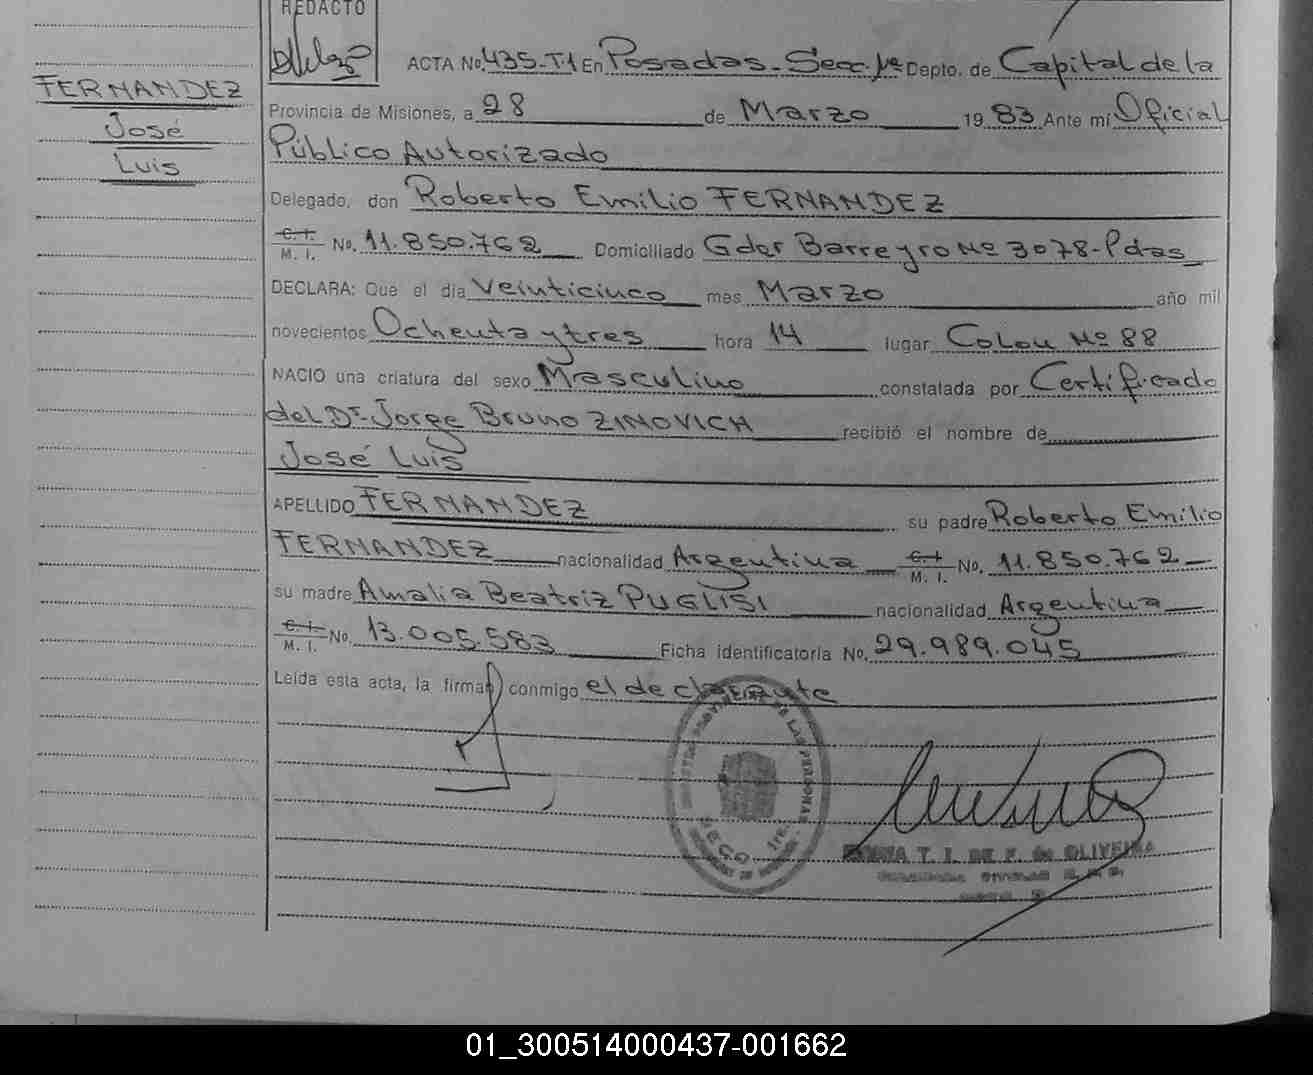 REDACTO
FERNANDEZ
José
Luis
ACTA No. 435-T1 En Posadas - Secc. 1ª Depto. de Capital de la
Provincia de Misiones, a 28 de Marzo 19 83 Ante mí Oficial
Público Autorizado
Delegado, don Roberto Emilio FERNANDEZ
C. I. M. I. No. 11.850.762 Domiciliado Gdor Barreyro Nº 3078 - Pdas
DECLARA: Que el día Veinticinco mes Marzo año mil
novecientos Ochenta y tres hora 14 lugar Colon Nº 88
NACIO una criatura del sexo Masculino constatada por Certificado
del Dr. Jorge Bruno ZINOVICH recibió el nombre de
José Luis
APELLIDO FERNANDEZ su padre Roberto Emilio
FERNANDEZ nacionalidad Argentina C. I. M. I. No. 11.850.762
su madre Amalia Beatriz PUGLISI nacionalidad Argentina
C. I. M. I. No. 13.005.583 Ficha identificatoria No. 29.989.045
Leída esta acta, la firma conmigo el declarante
T. I. DE F. de OLIVEIRA
01_300514000437-001662